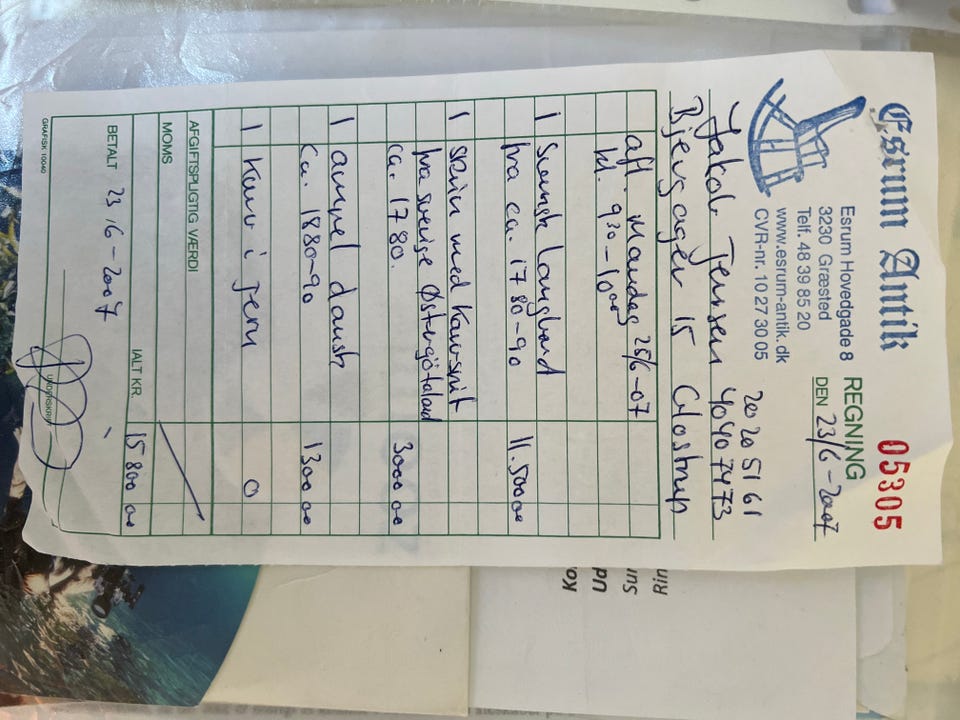 Esrum Antik
05305
Esrum Hovedgade 8
3230 Græsted
Telf. 48 39 85 20
www.esrum-antik.dk
CVR-nr. 10 27 30 05
REGNING
DEN 23/6-2007
20 20 51 61
Jakob Jensen 40407473
Bjergager 15 Glostrup
aft. Mandag 25/6-07
kl. 9³⁰-10⁰⁰
1 svensk langbord
fra ca. 1780-90 11.500 00
1 skrin med karvsnit
fra sverige Østergötaland
ca. 1780. 3000 00
1 ampel dansk
ca. 1880-90 1300 00
1 Kurv i jern 0
AFGIFTSPLIGTIG VÆRDI
MOMS
IALT KR. 15 800 00
BETALT 23/6-2007
UNDERSKRIFT
GRAFISK 10040
Ko
Up
Sun
Rin